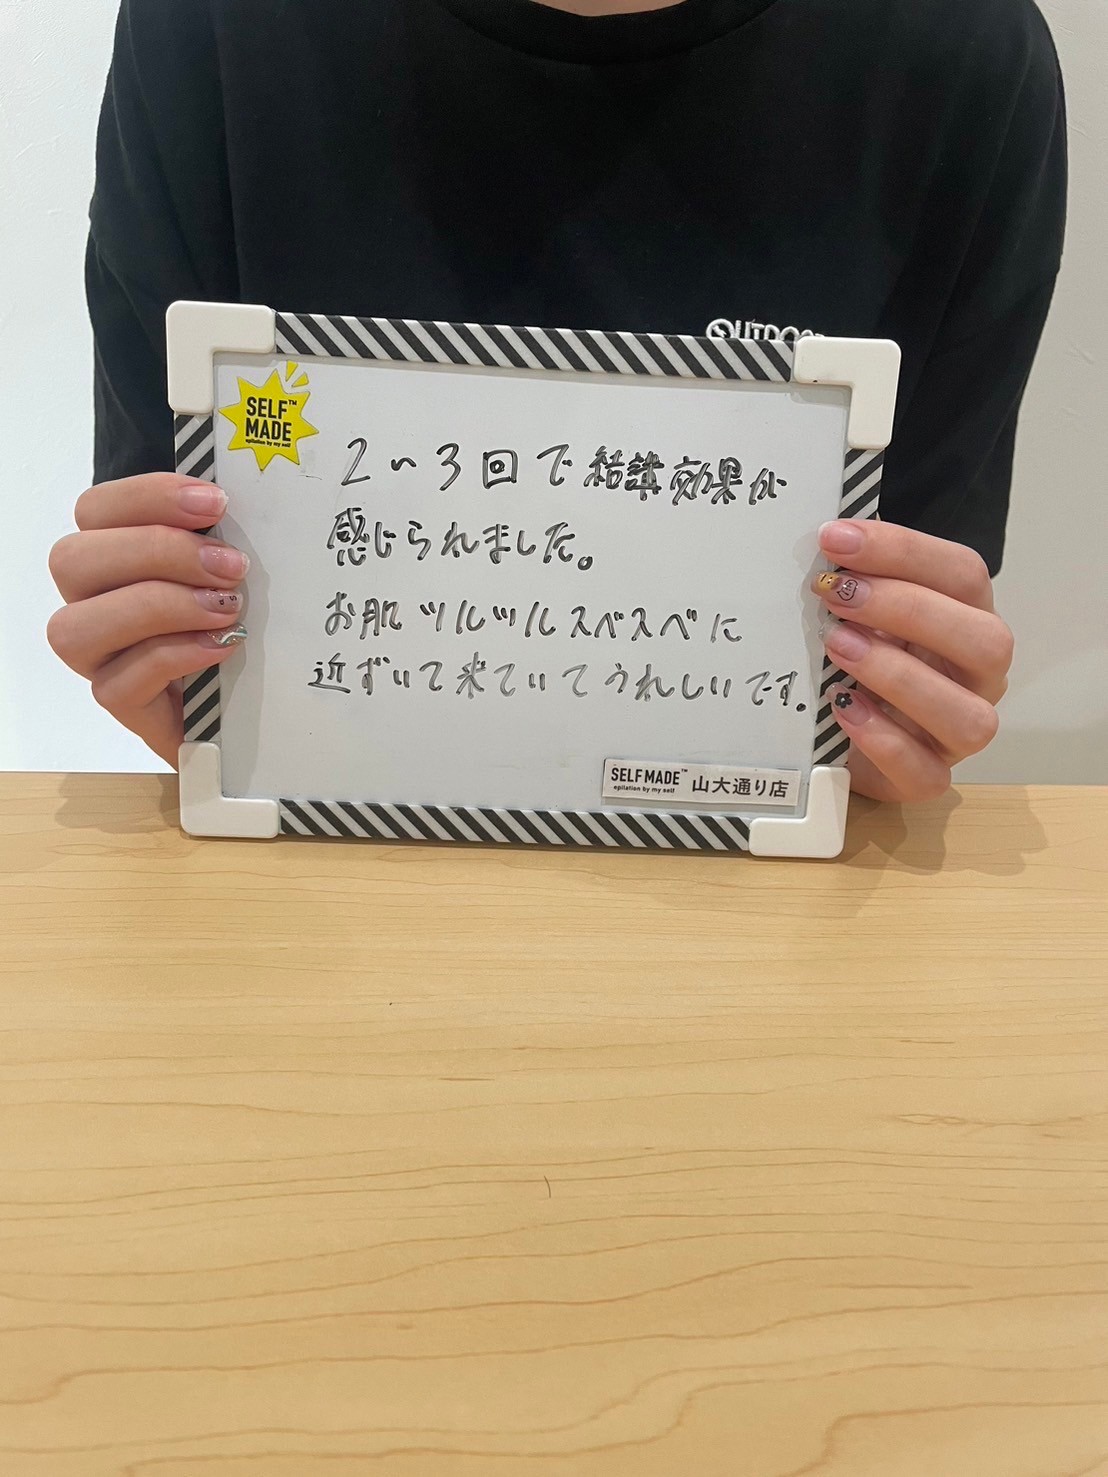 OUTDOOR
SELF™
MADE
epilation by my self
2〜3回で結講効果が
感じられました。
お肌ツルツルスベスベに
近ずいて来ていてうれしいです。
SELF MADE™ 山大通り店
epilation by my self